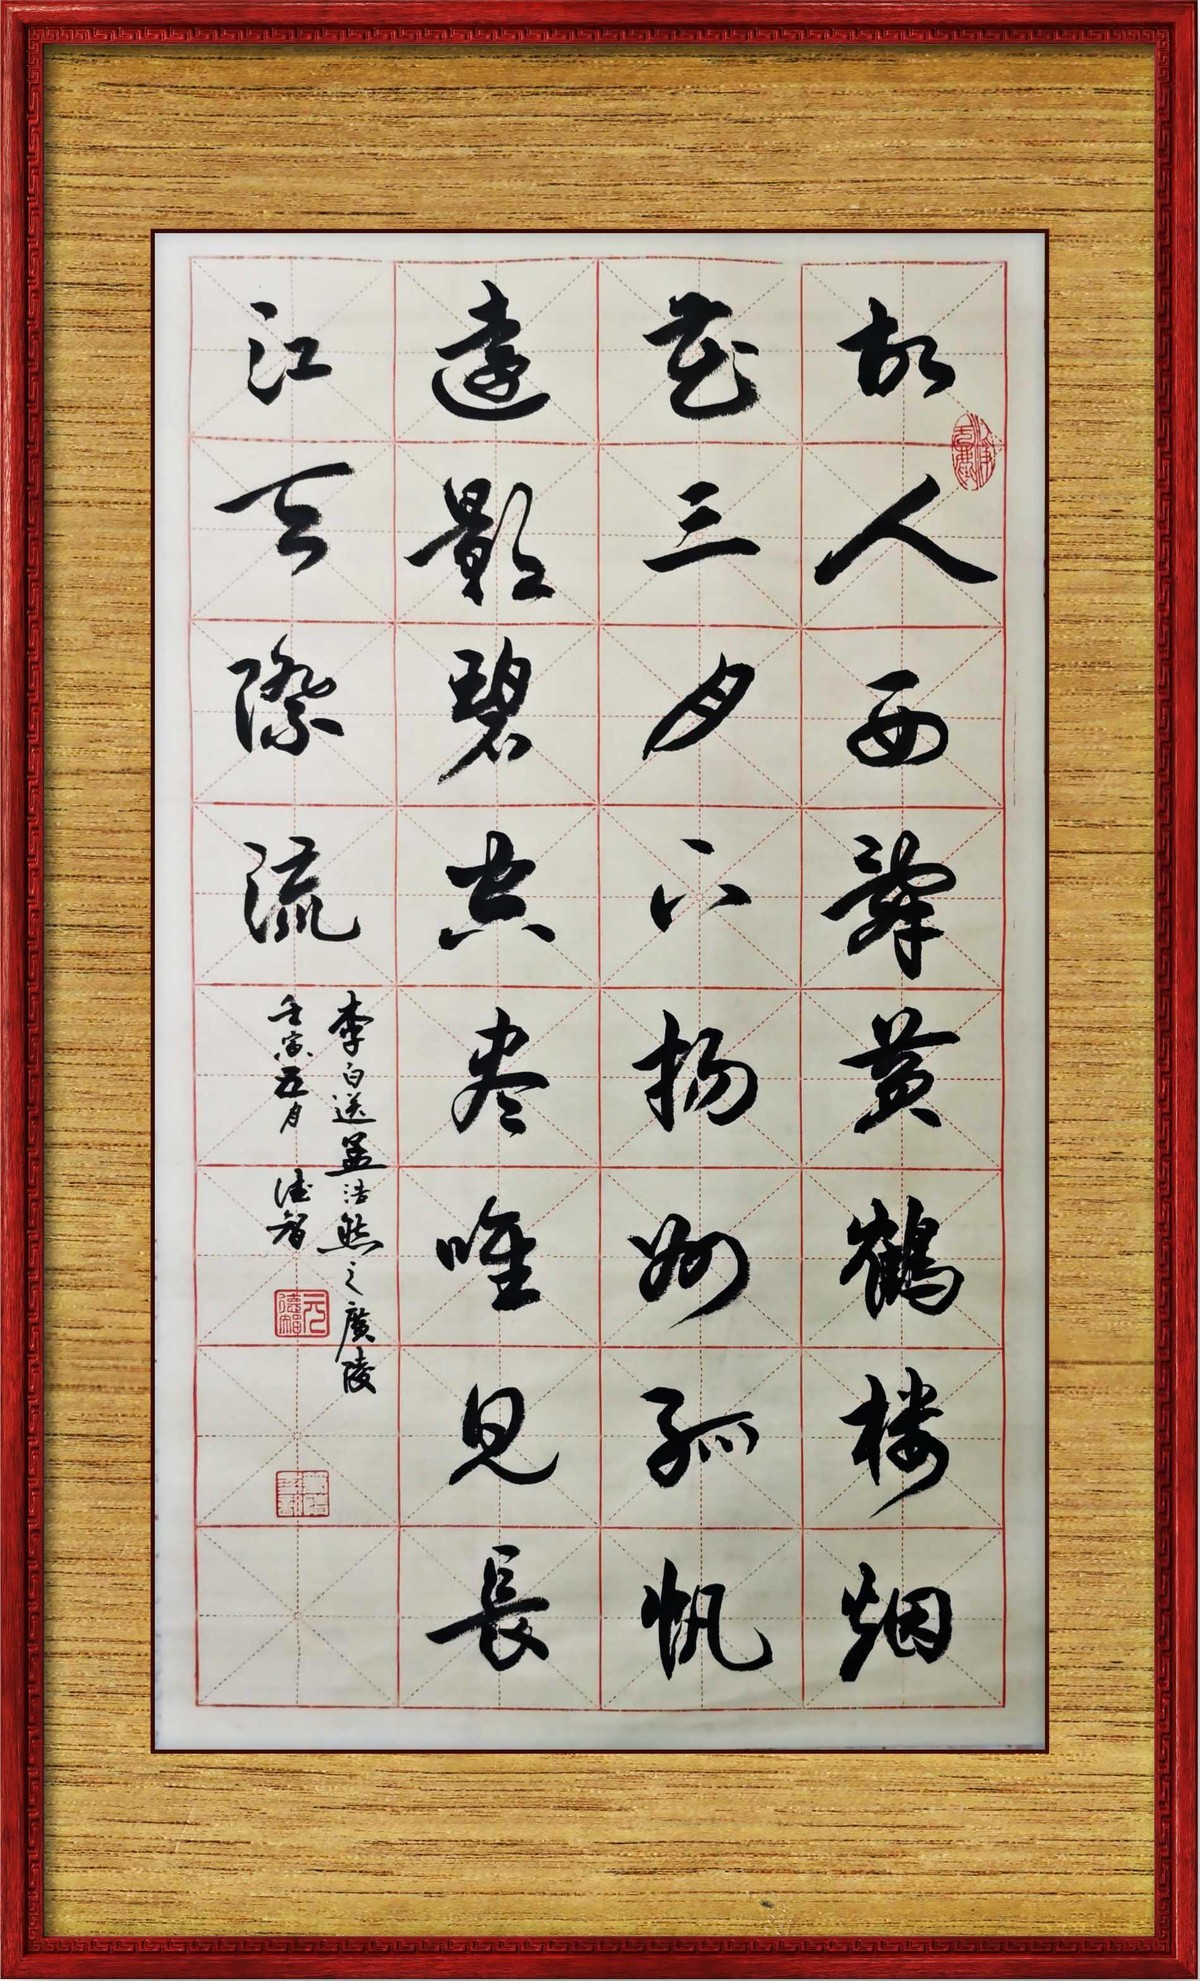 故人西辞黄鹤楼烟
花三月下扬州孤帆
遠影碧空尽唯見長
江天際流
李白送孟浩然之廣陵
壬寅五月 德智